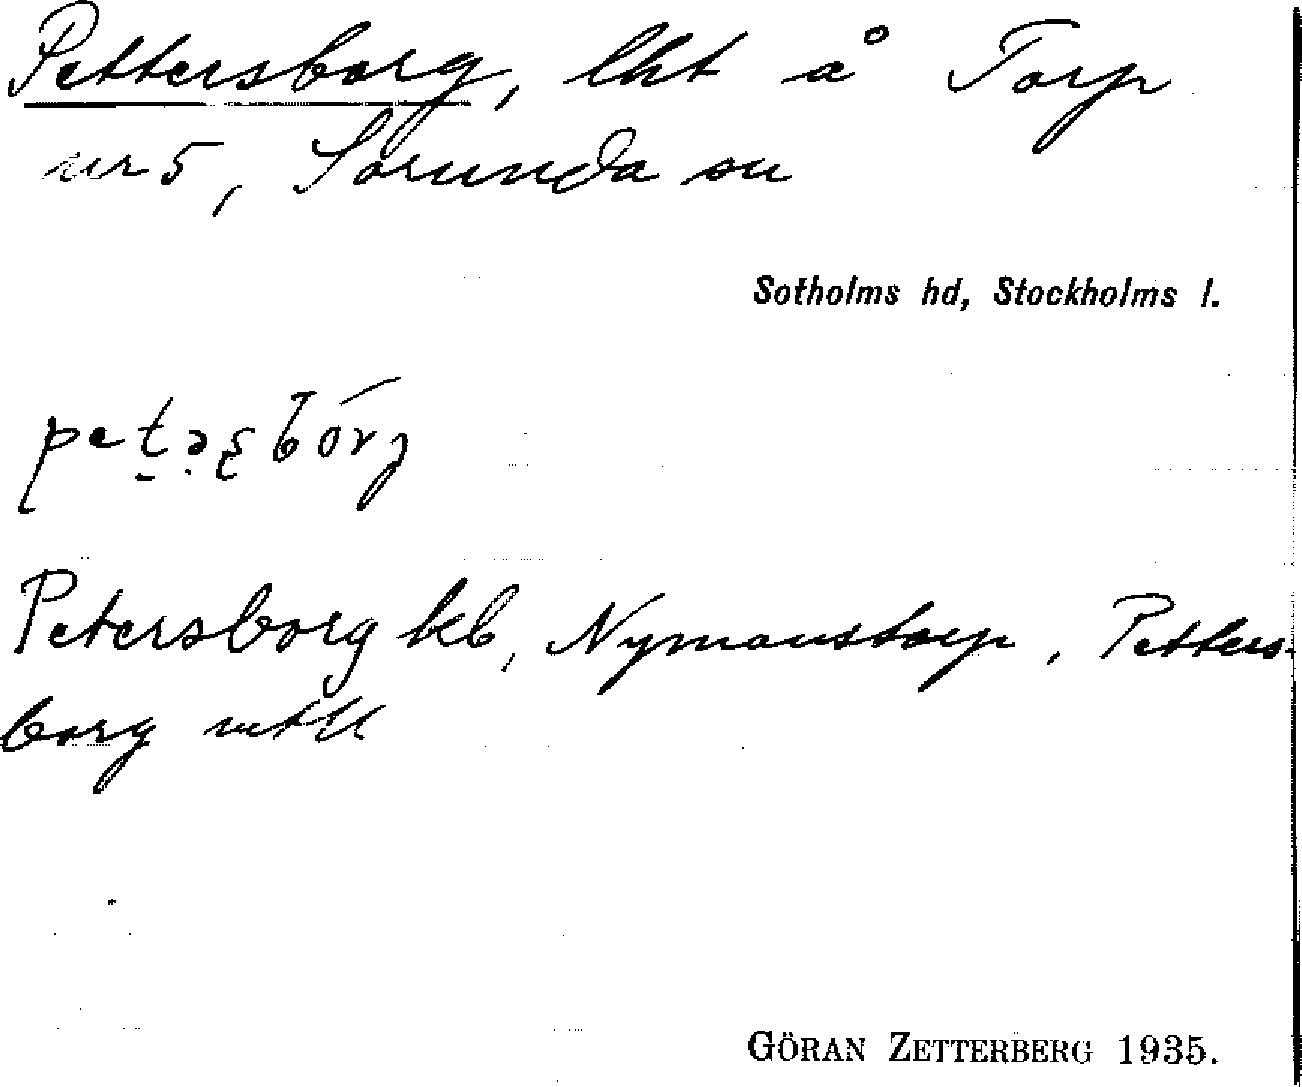 Pettersborg, lht å Torp
nr 5, Sorunda sn
Sotholms hd, Stockholms l.
Petersborg kb, Nymanstorp, Petters-
borg mtll
GÖRAN ZETTERBERG 1935.